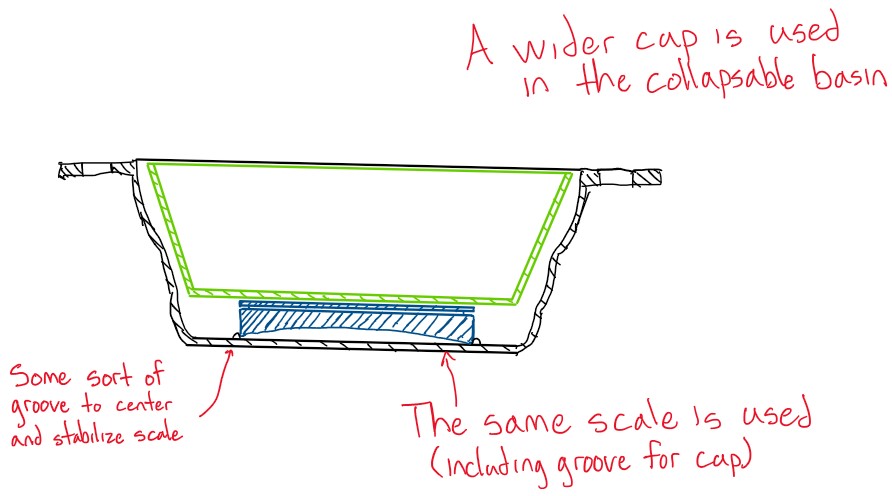 A wider cap is used
in the collapsable basin
Some sort of
groove to center
and stabilize scale
The same scale is used
(including groove for cap)